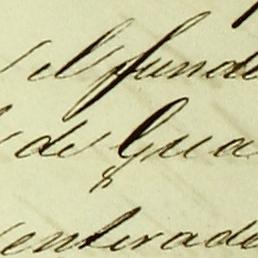 el funde
de Gua
enterade